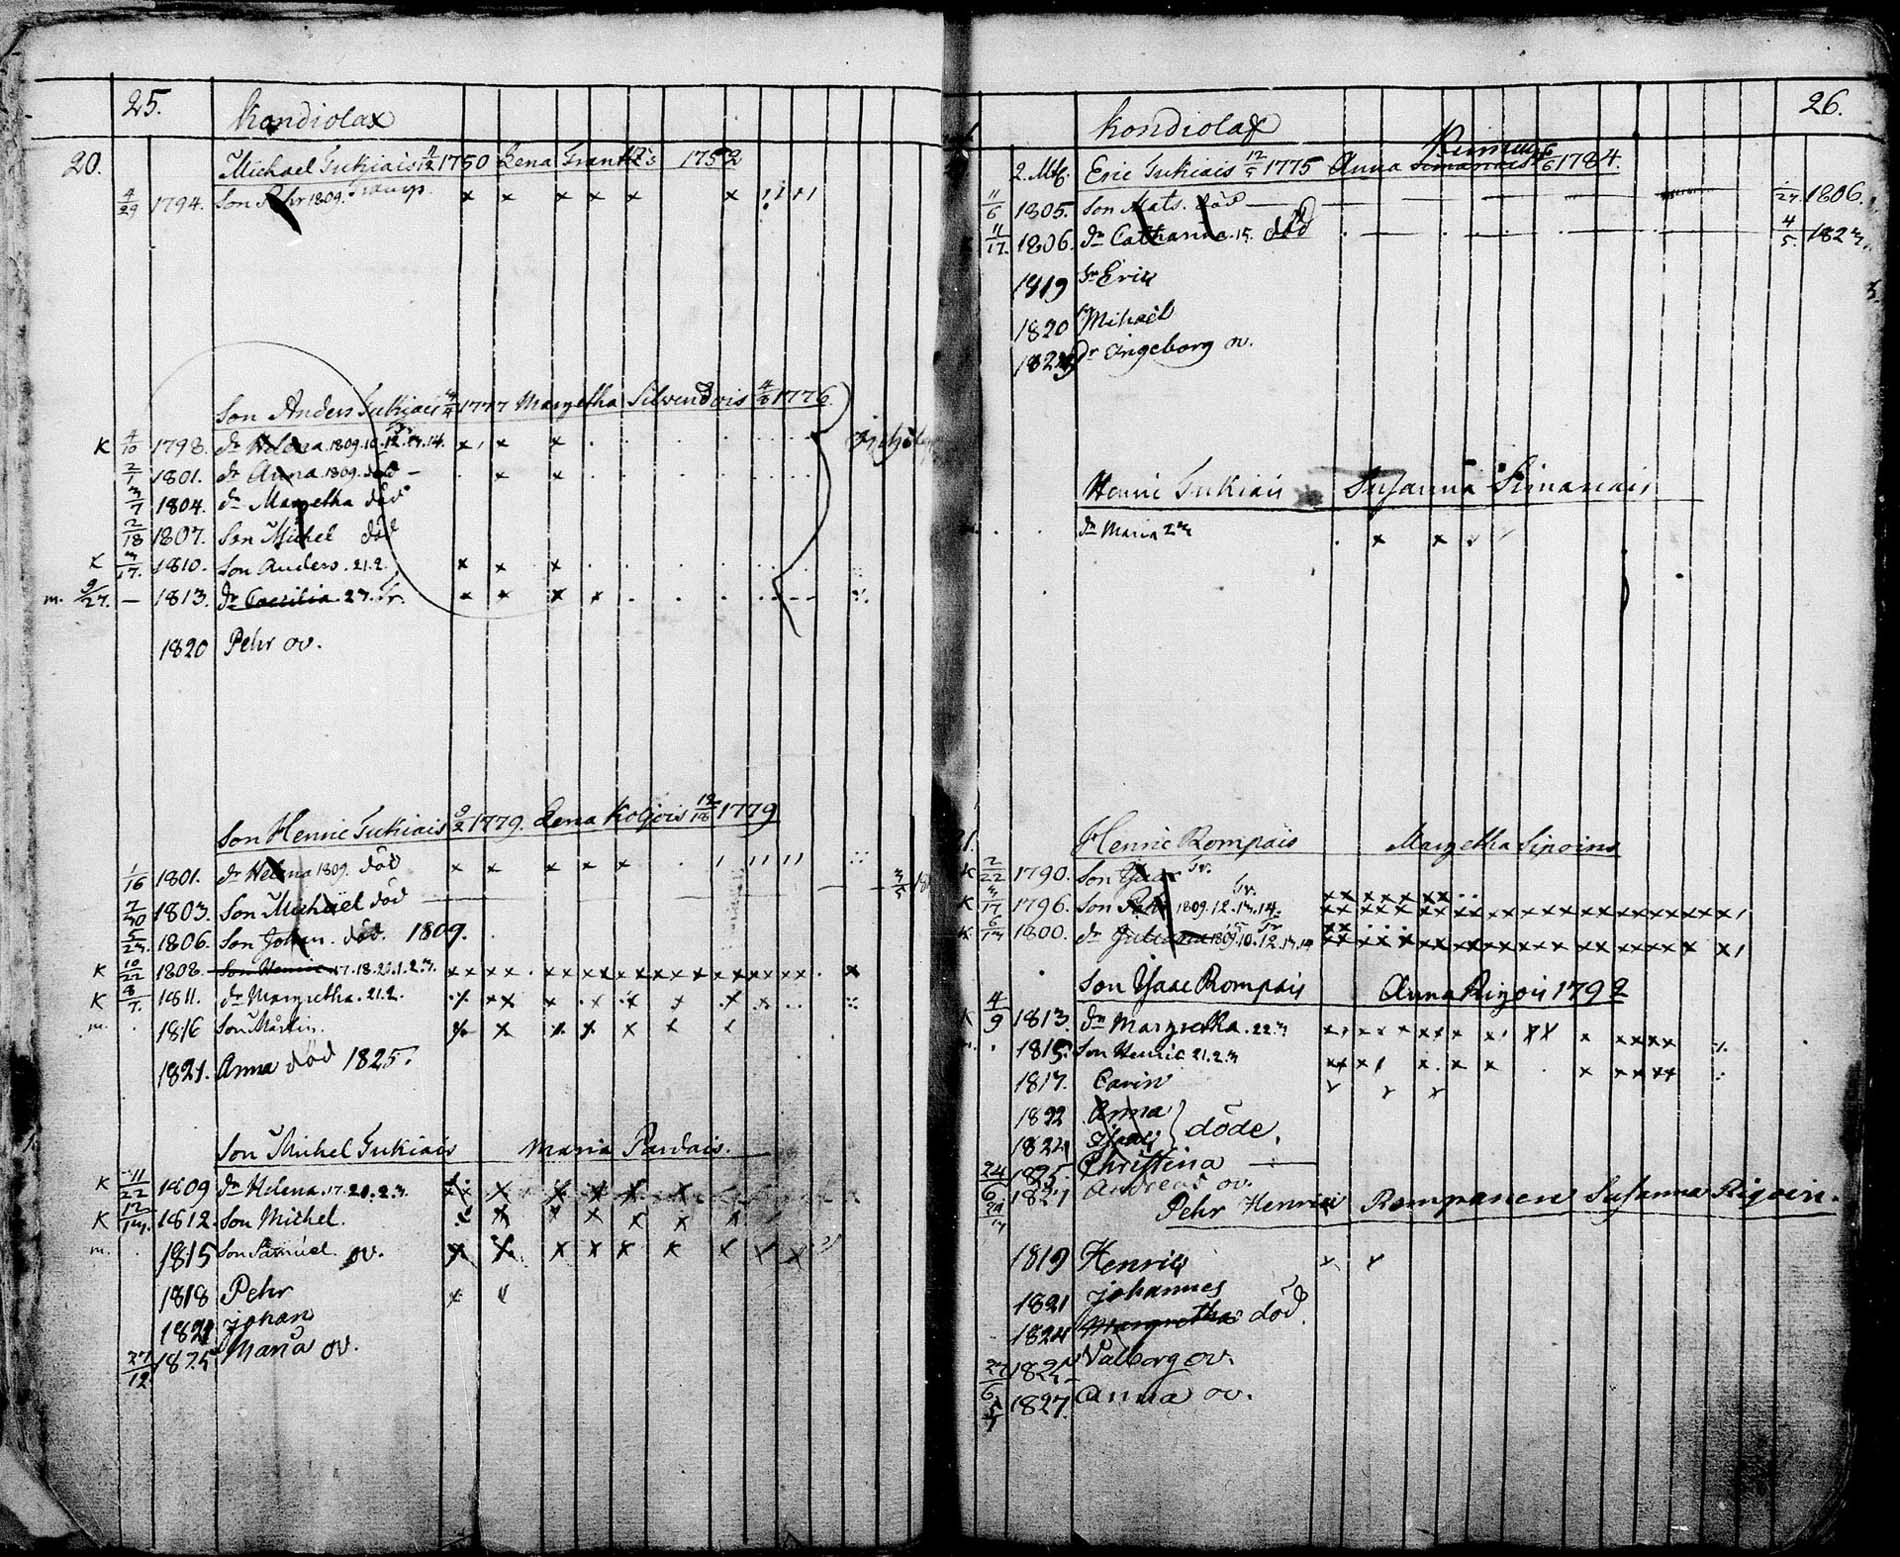 25.
Kondiolax
20.
Michael Tukiais 1750 Lena Frantz's 1752
4/29 1794. Son Pehr 1809.
Son Anders Tukiais 1777 Margetha Silvendois 4/8 1776.
K 4/10 1798. dr Helena 1809.10.12.13.14.
2/1 1801. dr Anna 1809. död
3/7 1804. dr Margetha död
2/18 1807. Son Michel död
K 3/17. 1810. Son Anders. 21.2.
m. 9/27. — 1813. dr Caecilia. 23. Fr.
1820 Pehr ov.
Son Henric Tukiais 9/2 1779. Lena Koljois 12/18 1779
1/16 1801. dr Helena 1809. död
7/30 1803. Son Michael död
5/23. 1806. Son Johan. död. 1809.
K 10/22 1808. Son Henric 17.18.20.1.2.3.
K 8/7. 1811. dr Margretha. 21.2.
m. 1816 Son Mårtin.
1821. Anna död 1825.
Son Michel Tukiais Maria Parviais.
K 11/22 1809 dr Helena. 17.20.2.3.
K 12/13. 1812. Son Michel.
m. 1815 Son Samuel. ov.
1818 Pehr
1821 Johan
27/12 1825 Maria ov.
26.
Kondiolax
2. Mtl. Eric Tukiais 12/5 1775 Anna Simanais 6/6 1784.
11/6 1805. Son Mats. död 1806.
11/17. 1806. dr Catharina. 15. död 4/5 1823.
1819 Sn Eric
1820 Mihael
dr Ingeborg ov.
Henric Tukiais Susanna Simanais
dr Maria 23
Henric Rompais Margetha Sipoins
K 2/22 1790. Son Isaac Fr.
K 3/17 1796. Son Pehr 1809.12.13.14. Fr.
K 1800. dr Juliana 1809.10.12.13.14
Son Isaac Rompais Anna Rigois 1792
K 4/9 1813. dr Margretha. 22.3
1815. Son Henric 21.2.3
1817. Carin
1822 Anna
1824 Isaac } döde.
1825 Christina
1827 Andreas ov.
Pehr Henric Rompanen Susanna Rigoin.
1819 Henric
1821 Johannes
1824 Margretha död.
Valborg ov.
1827. Anna ov.